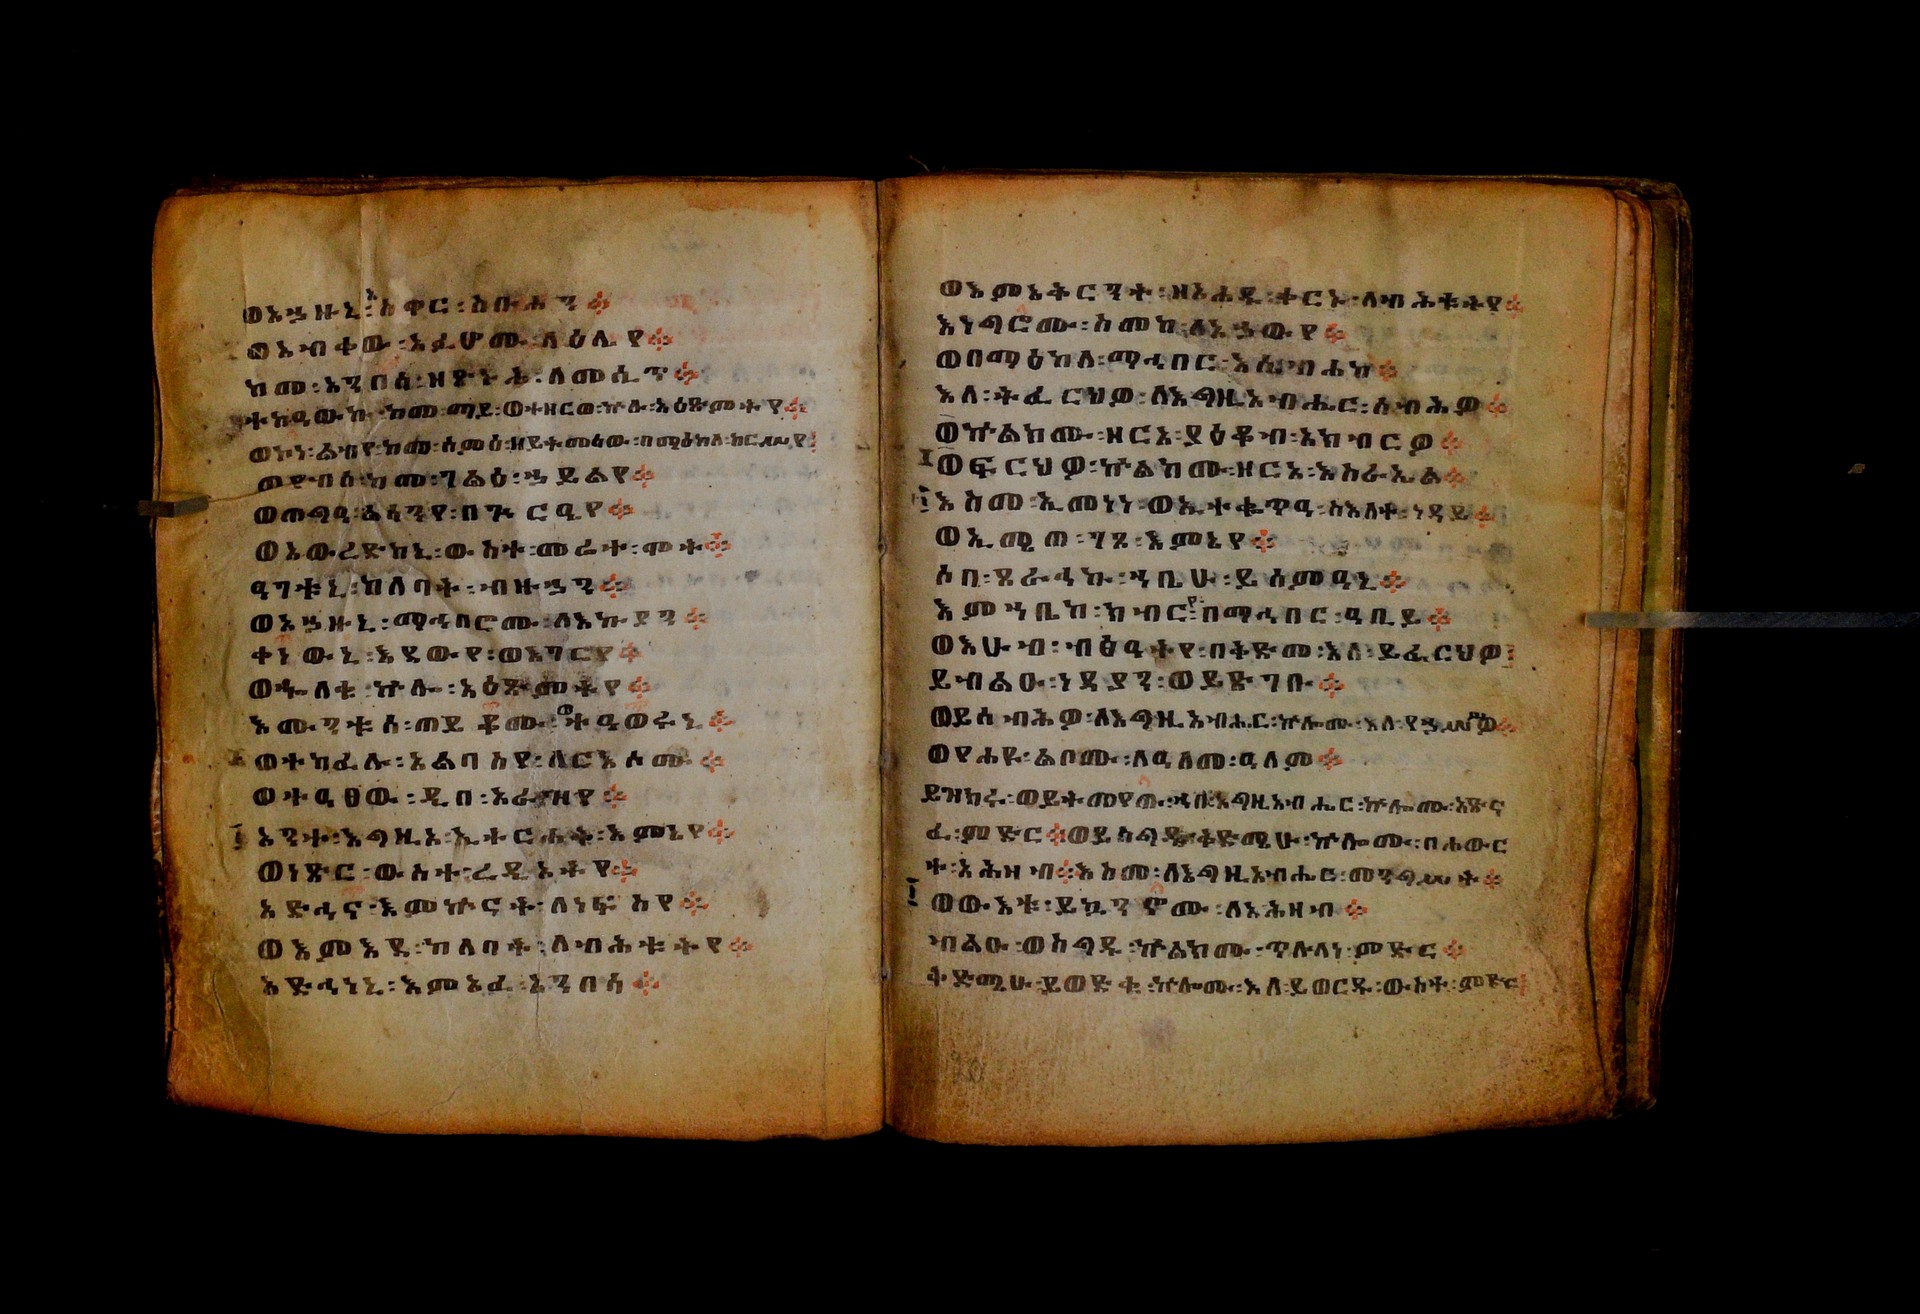 ወአኀዙኒ፡አስዋር፡ስቡሓን።
ወአብቀዉ፡አፉሆሙ፡ላዕሌየ።
ከመ፡አንበሳ፡ዘጽኑሕ፡ለመሢጥ።
ተክዕውኩ፡ከመ፡ማይ፡ወተዘርወ፡ኵሉ፡አዕጽምትየ።
ወኮነ፡ልብየ፡ከመ፡ሰምዕ፡ዘይትመሰው፡በማዕከለ፡ከርሥየ።
ወየብሰ፡ከመ፡ገልዕ፡ኀይልየ።
ወጠግዐ፡ልሳንየ፡በጕርዔየ።
ወአውረድከኒ፡ውስተ፡መሬተ፡ሞት።
ዐገቱኒ፡ከለባት፡ብዙኃን።
ወአኀዙኒ፡ማኅበሮሙ፡ለእኩያን።
ቀነዉኒ፡እደውየ፡ወእገርየ።
ወኈለቁ፡ኵሎ፡አዕጽምትየ።
እሙንቱሰ፡ጠይቆሙ፡ተዐወሩኒ።
ወተካፈሉ፡አልባስየ፡ለርእሶሙ።
ወተዐፀዉ፡ዲበ፡አራዝየ።
አንተ፡እግዚኦ፡ኢትርሐቅ፡እምኔየ።
ወነጽር፡ውስተ፡ረዲኦትየ።
አድኅና፡እምኵናት፡ለነፍስየ።
ወእምእደ፡ከለባት፡ለብሕቱትየ።
አድኅነኒ፡እምአፈ፡አንበሳ።
ወእምአቅርንት፡ዘአሐዱ፡ቀርኑ፡ለብሕቱትየ።
እነግሮሙ፡ስመከ፡ለአኀውየ።
ወበማዕከለ፡ማኅበር፡እሴብሐከ።
እለ፡ትፈርህዎ፡ለእግዚአብሔር፡ሰብሕዎ።
ወኵልክሙ፡ዘርአ፡ያዕቆብ፡አክብርዎ።
ወፍርህዎ፡ኵልክሙ፡ዘርአ፡እስራኤል።
እስመ፡ኢመነነ፡ወኢተቈጥዐ፡ስእለተ፡ነዳይ።
ወኢሜጠ፡ገጾ፡እምኔየ።
ሶበ፡ጸራኅኩ፡ኀቤሁ፡ይሰምዐኒ።
እምኀቤከ፡ክብርየ፡በማኅበር፡ዐቢይ።
ወእሁብ፡ብፅዓትየ፡በቅድመ፡እለ፡ይፈርህዎ።
ይብልዑ፡ነዳያን፡ወይጽገቡ።
ወይሴብሕዎ፡ለእግዚአብሔር፡ኵሎሙ፡እለ፡የኀሥሥዎ።
ወየሐዩ፡ልቦሙ፡ለዓለመ፡ዓለም።
ይዝከሩ፡ወይትመየጡ፡ኀበ፡እግዚአብሔር፡ኵሎሙ፡አጽና
ፈ፡ምድር።ወይሰግዱ፡ቅድሜሁ፡ኵሎሙ፡በሐውር
ት፡አሕዛብ።እስመ፡ለእግዚአብሔር፡መንግሥት።
ወውእቱ፡ይኴንኖሙ፡ለአሕዛብ።
ብልዑ፡ወስግዱ፡ኵልክሙ፡ጥሉላነ፡ምድር።
ቅድሜሁ፡ይወድቁ፡ኵሎሙ፡እለ፡ይወርዱ፡ውስተ፡ምድር።